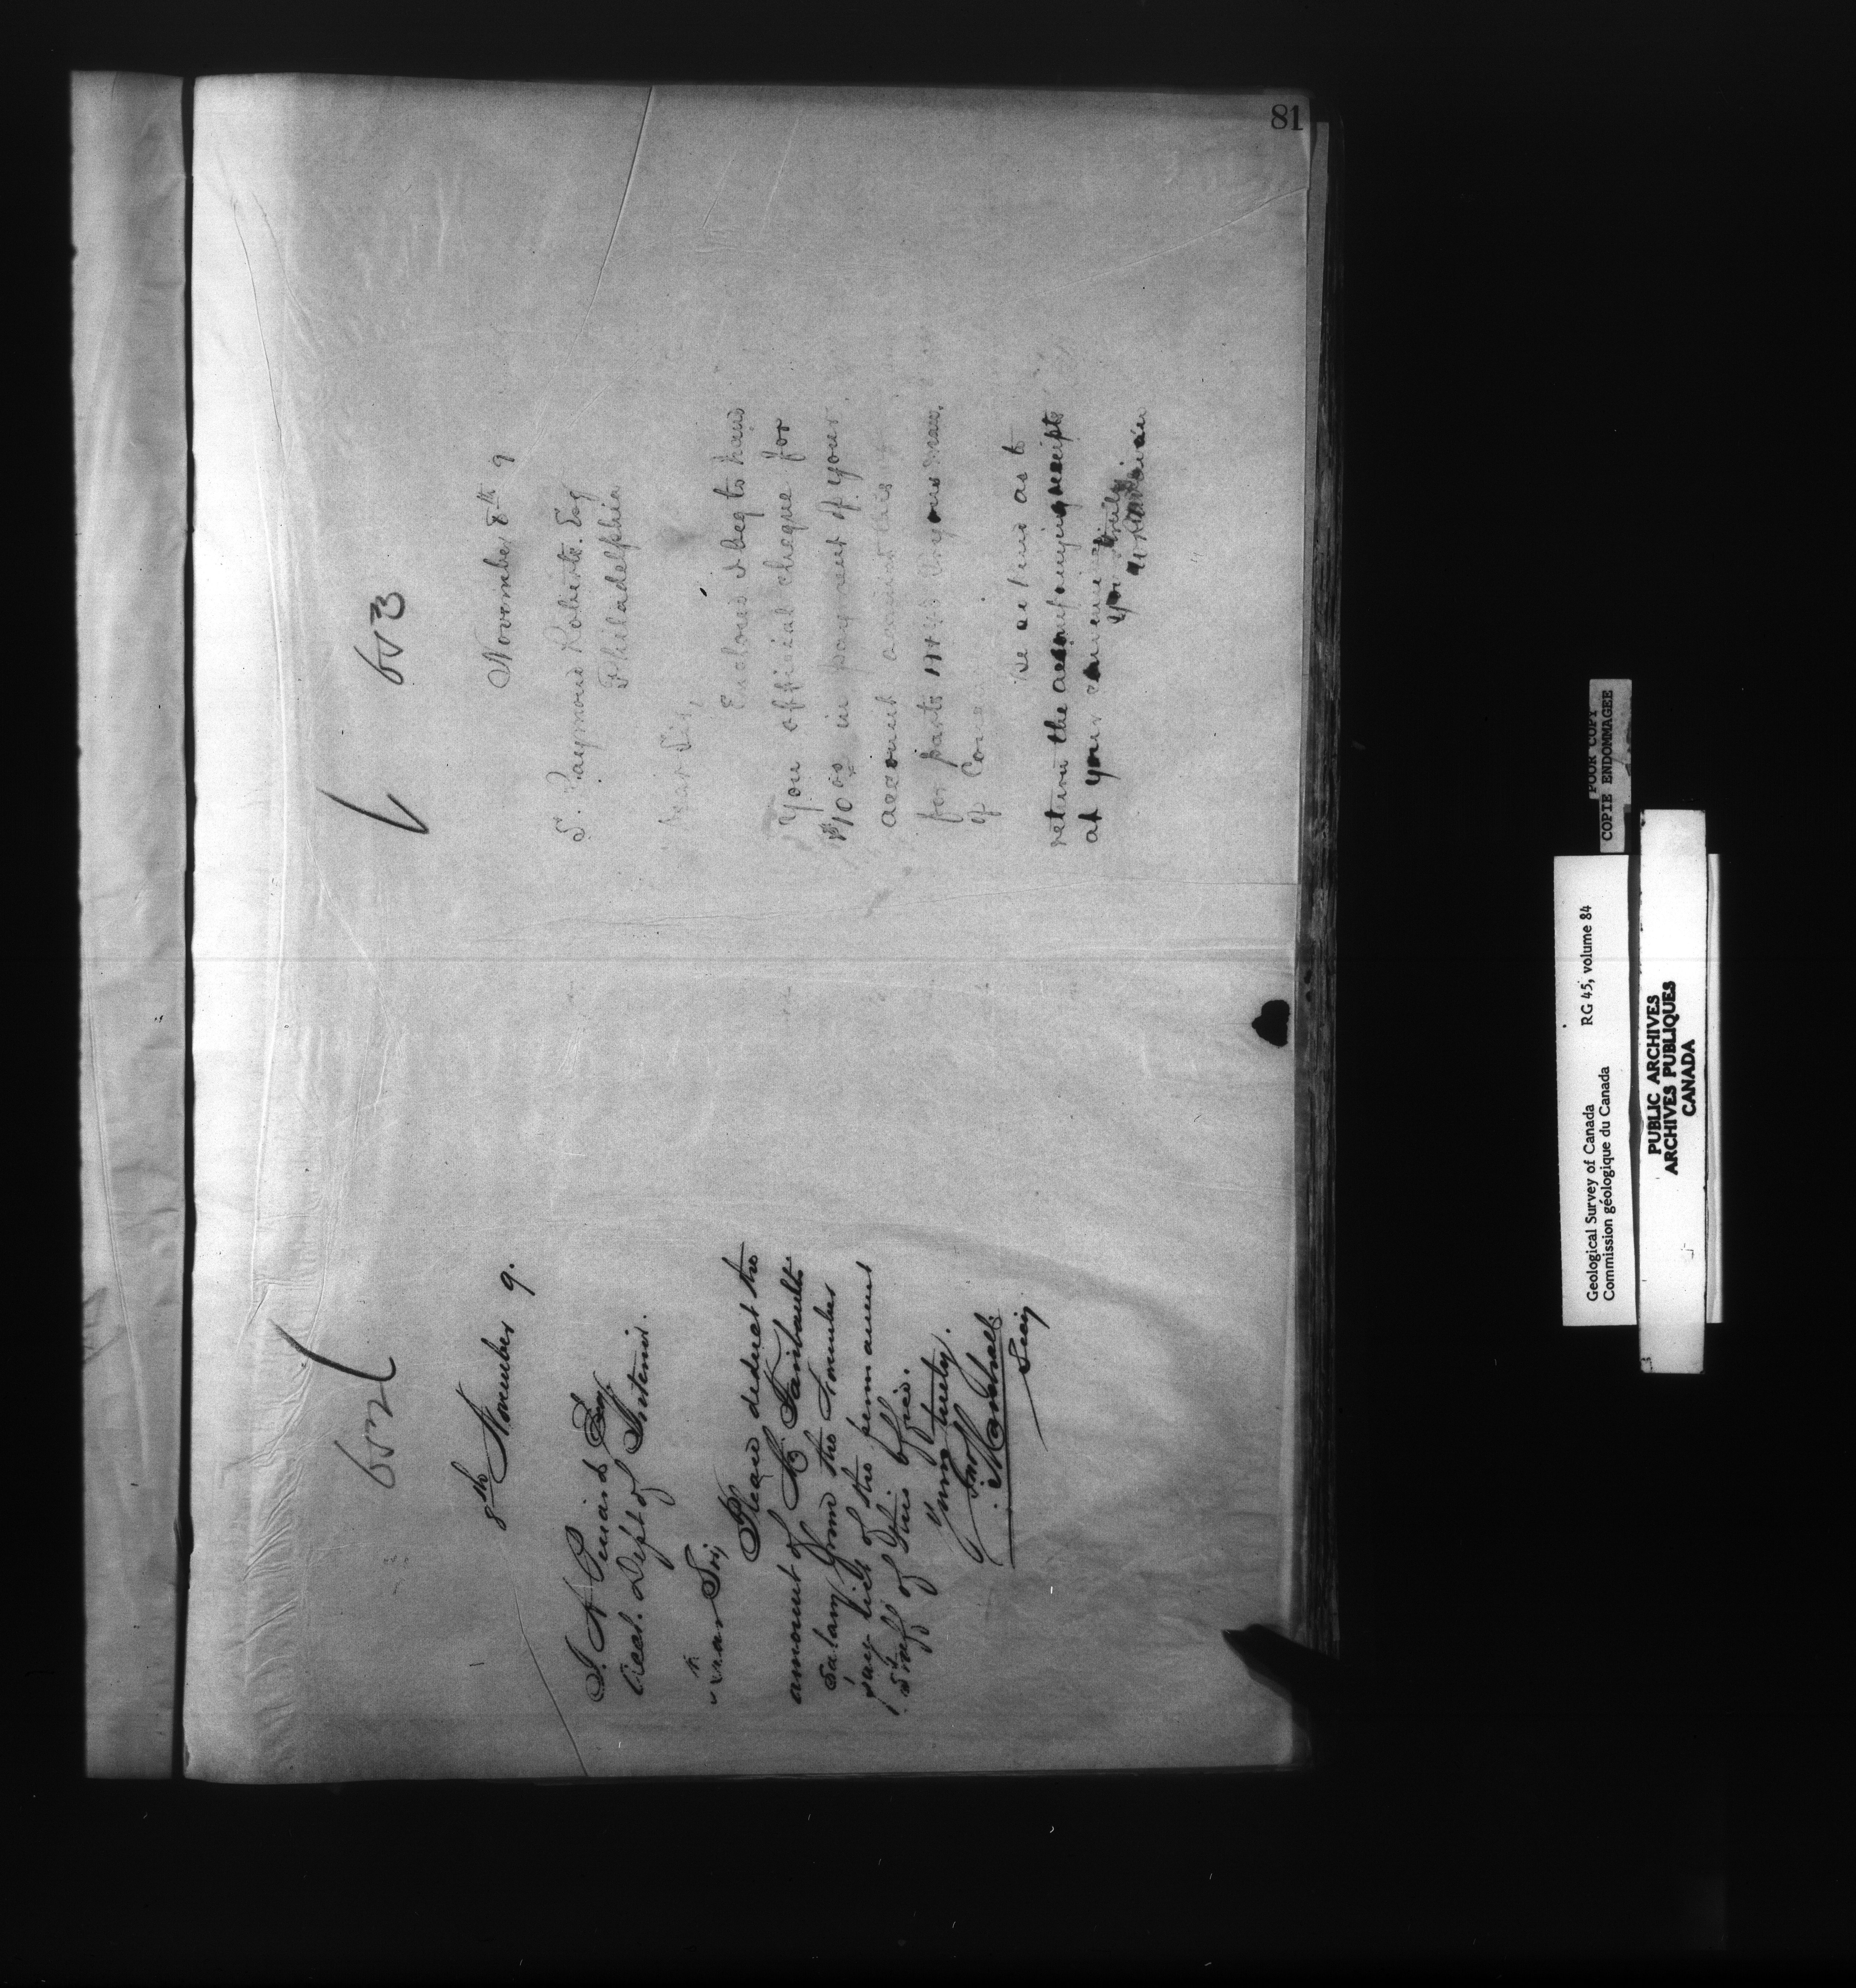 81
652
8th November 9.
J. A. Pinard Esq
Acct. Dept of Interior.
Dear Sir,
Please deduct the
amount of Mr Faribault's
salary from the November
pay list of the permanent
staff of this office.
Yours truly.
Marshall
Secy
653
November 8th 9
S. Raymond Roberts. Esq
Philadelphia
Dear Sir,
Enclosed I beg to hand
You official cheque for
$10 00 in payment of your
account
for parts
of
be as to
return the accompanying receipts
at your convenience
Yours truly
POOR COPY
COPIE ENDOMMAGEE
Geological Survey of Canada RG 45, volume 84
Commission géologique du Canada
PUBLIC ARCHIVES
ARCHIVES PUBLIQUES
CANADA